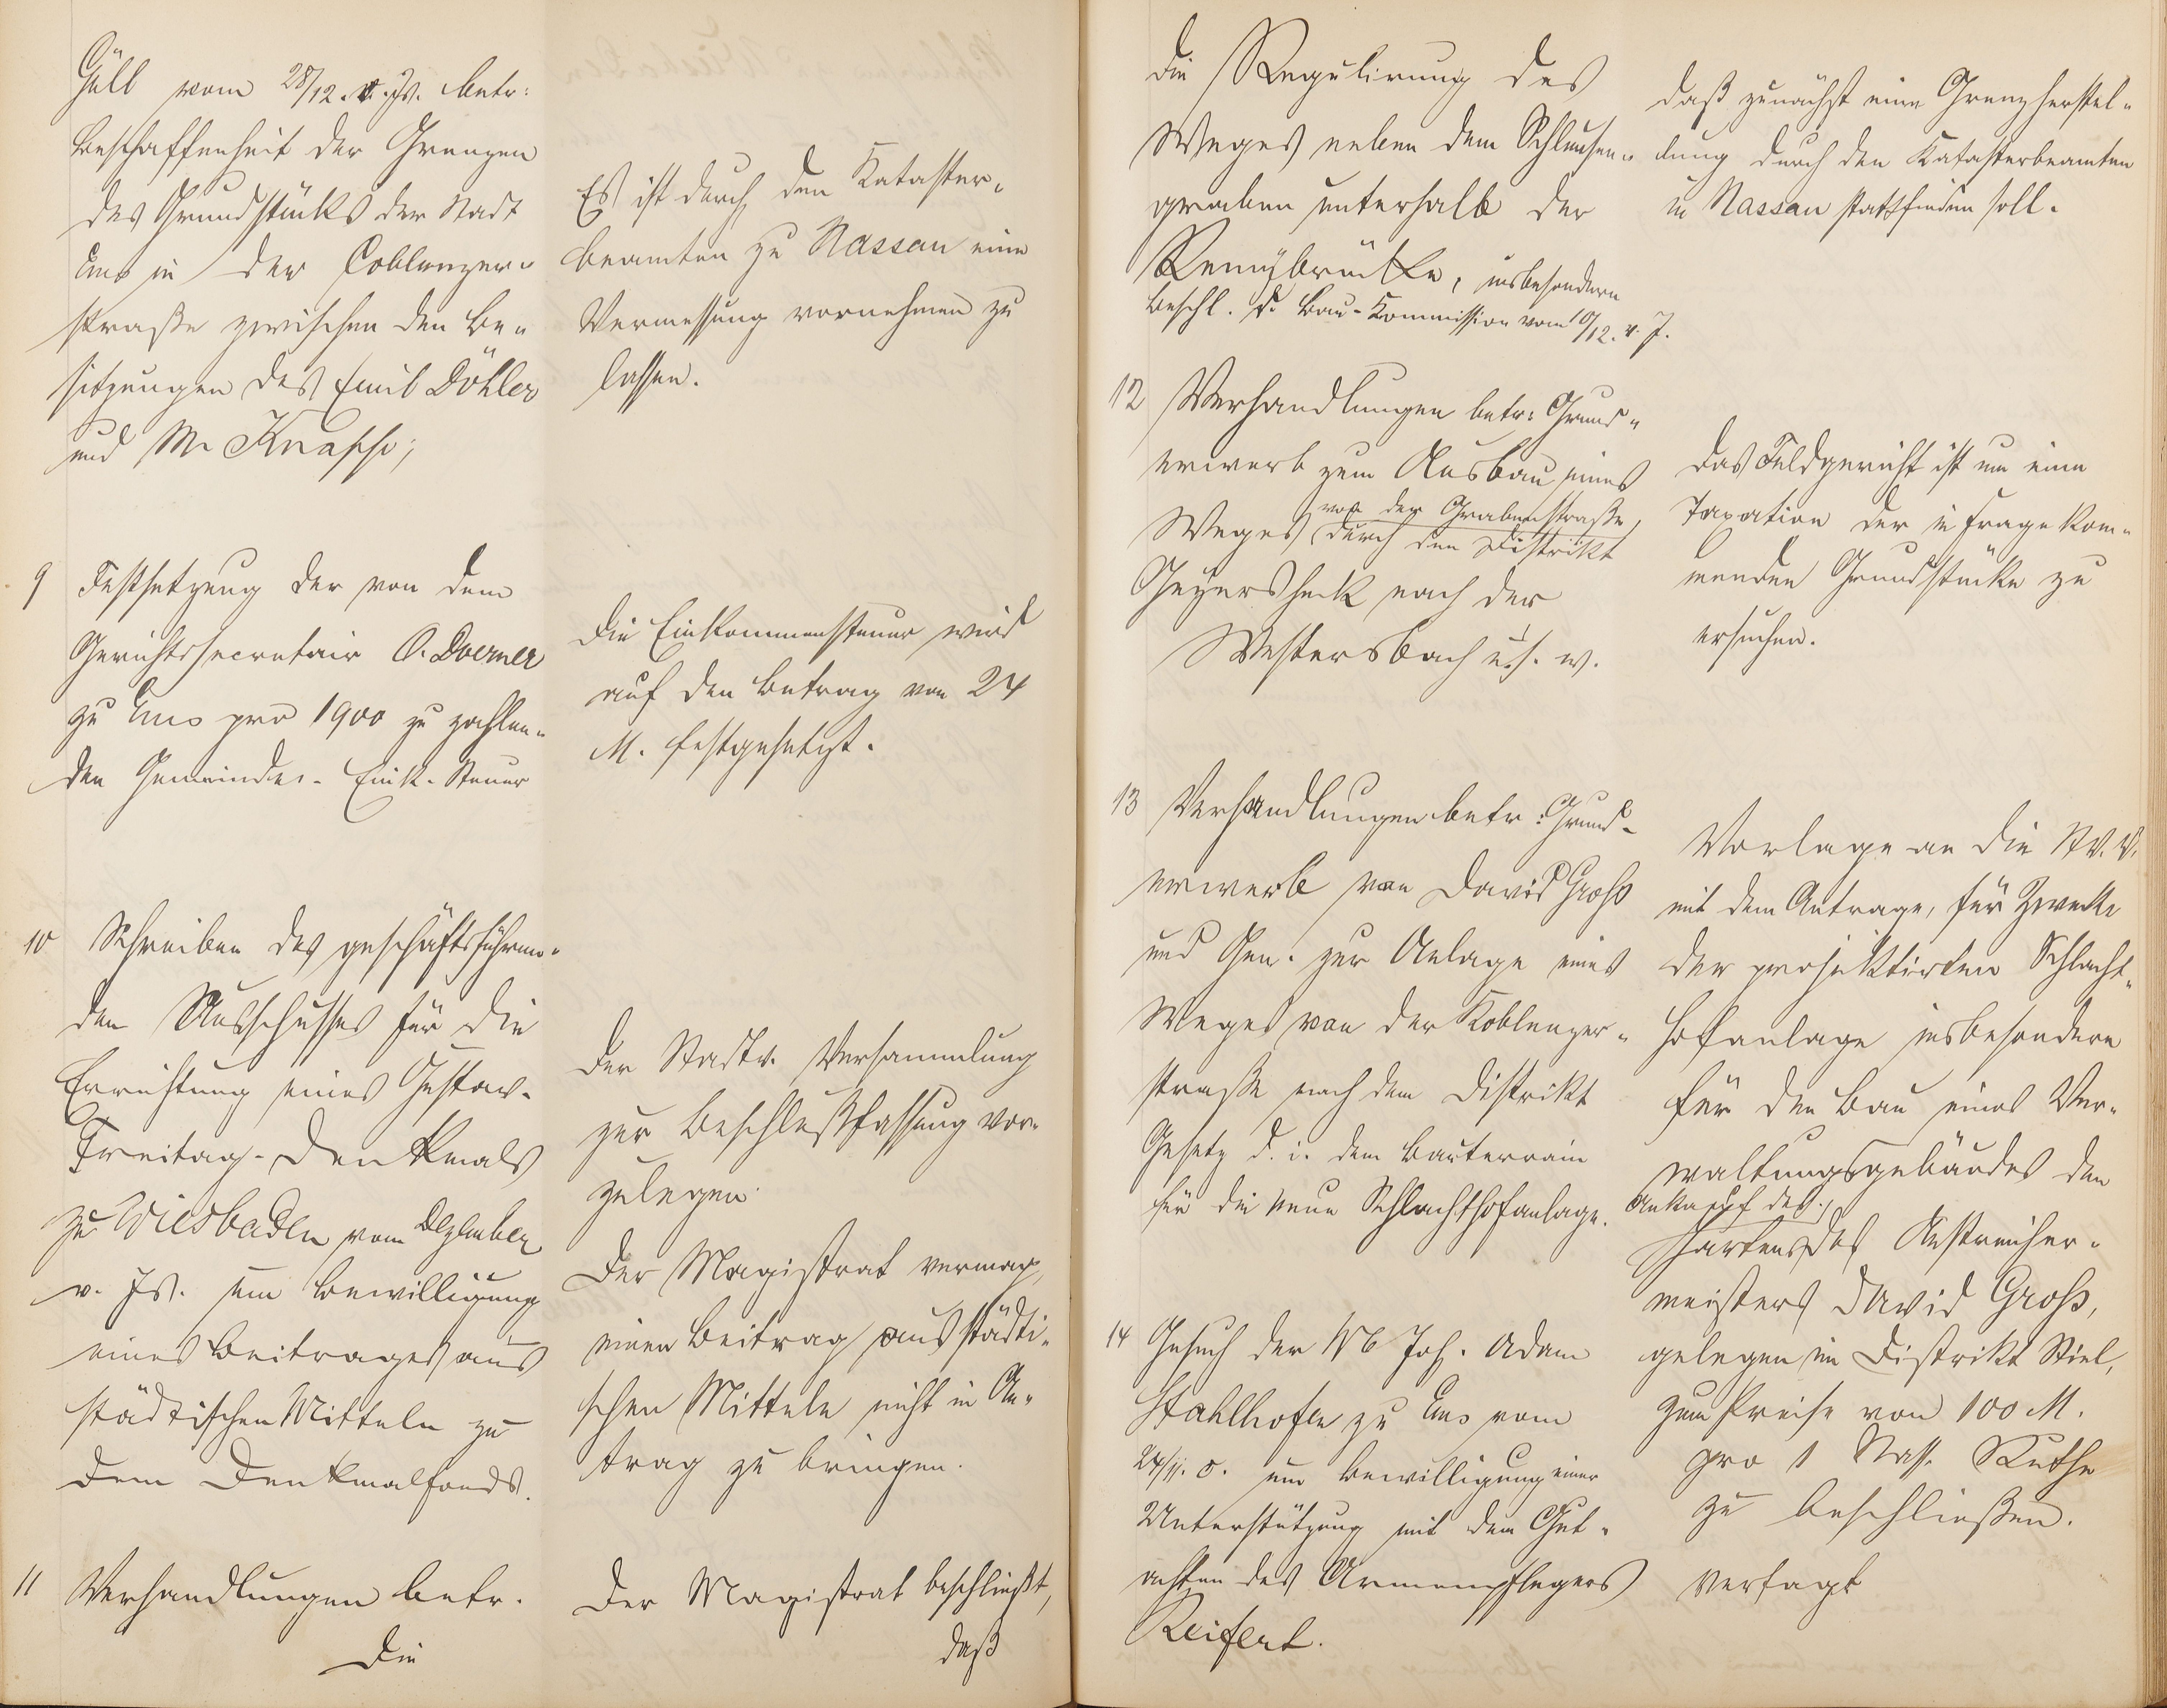 Güll vom 28/12. v. Js. betr:
Beschaffenheit der Grenzen
des Grundstücks der Stadt
Ems in der Coblenzer-
straße zwischen den Be-
sitzungen des Emil Döhler
und M. Knapp;
Es ist durch den Kataster-
beamten zu Nassau eine
Vermessung vornehmen zu
lassen.
9 Festsetzung der von dem
Gerichtssecretair O. Doerner
zu Ems pro 1900 zu zahlen-
den Gemeinde- Eink. Steuer
Die Einkommensteuer wird
auf den Betrag von 24
M. festgesetzt.
10 Schreiben des geschäftsführen-
den Ausschusses für die
Errichtung eines Gustav-
Freitag-Denkmals
zu Wiesbaden vom Dezember
v. Js. um Bewilligung
eines Beitrages aus
städtischen Mitteln zu
dem Denkmalfonds.
Der Stadtv. Versammlung
zur Beschlußfassung vor-
zulegen.
Der Magistrat vermag,
einen Beitrag aus städti-
schen Mitteln nicht in An-
trag zu bringen.
11 Verhandlungen betr.
Die
Der Magistrat beschließt,
daß
die Regulirung des
Weges neben dem Schleusen-
graben unterhalb der
Remybrücke, insbesondere
Beschl. d. Bau-Kommission vom 10/12. v. J.
daß zunächst eine Grenzherstel-
lung durch den Katasterbeamten
in Nassau stattfinden soll.
12 Verhandlungen betr: Grund-
erwerb zum Ausbau eines
von der Grabenstraße,
Weges durch den Distrikt
Geyersheck nach der
Westersbach u. s. w.
Das Feldgericht ist um eine
Taxation der in Frage kom-
menden Grundstücke zu
ersuchen.
13 Verhandlungen betr: Grund-
erwerb von David Groß
und Gen. zur Anlage eines
Weges von der Koblenzer-
straße nach dem Distrikt
Gesetz d. i. dem Bauterrain
für die neue Schlachthofanlage.
Vorlage an die St. V.
mit dem Antrage, für Zwecke
der projektirten Schlacht-
hofanlage insbesondere
für den Bau eines Ver-
waltungsgebäudes den
Ankauf des
Gartens des Anstreicher-
meisters David Groß,
gelegen im Distrikt Stiel,
zum Preise von 100 M.
pro 1 Nass. Ruthe
zu beschließen.
14 Gesuch der Wb Joh. Adam
Stahlhofen zu Ems vom
24/11. 0. um Bewilligung einer
Unterstützung mit dem Gut-
achten des Armenpflegers
Reifert.
Versagt